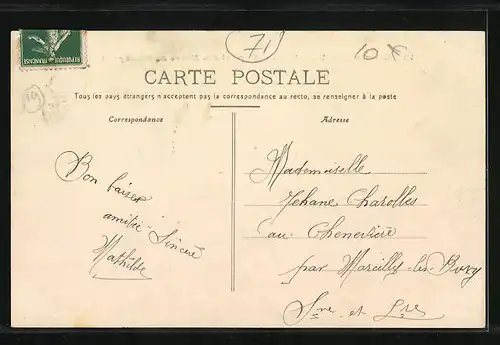 71
10 F
RÉPUBLIQUE FRANÇAISE
CARTE POSTALE
Tous les pays étrangers n'acceptent pas la correspondance au recto, se renseigner à la poste
Correspondance
Adresse
Bon baiser
amitié Sincère
Mathilde
Mademoiselle
Jehane Charolles
au Chenevière
par Marcilly-les-Buxy
Sne et Lre